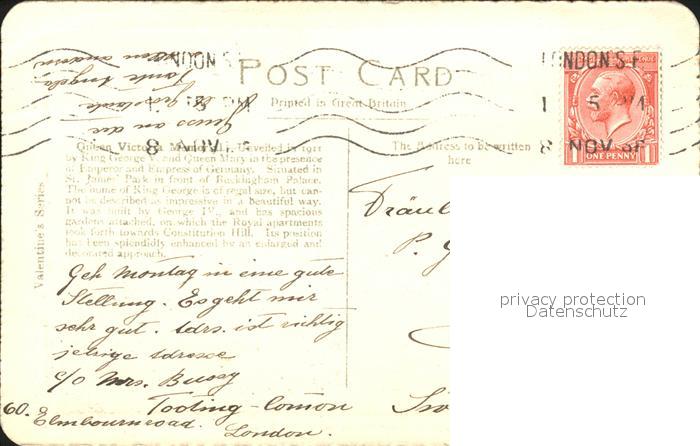 LONDON S.E.
5 PM
8 NOV 36
POST CARD
Printed in Great Britain
ONE PENNY
Queen Victoria Memorial, unveiled in 1911
by King George V. and Queen Mary in the presence
of Emperor and Empress of Germany. Situated in
St. James' Park in front of Buckingham Palace.
The home of King George is of regal size, but can-
not be described as impressive in a beautiful way.
It was built by George IV., and has spacious
gardens attached, on which the Royal apartments
look forth towards Constitution Hill. Its position
has been splendidly enhanced by an enlarged and
decorated approach.
The Address to be written
here
Valentine's Series
Gruss an die
Tante Angela
Geh Montag in eine gute
Stellung. Es geht mir
sehr gut. Adrs. ist richtig
jetzige Adresse
c/o Mrs. Bussy
60. Tooting-Comon
Elmbourneroad. London.
Fräul
P.
privacy protection
Datenschutz